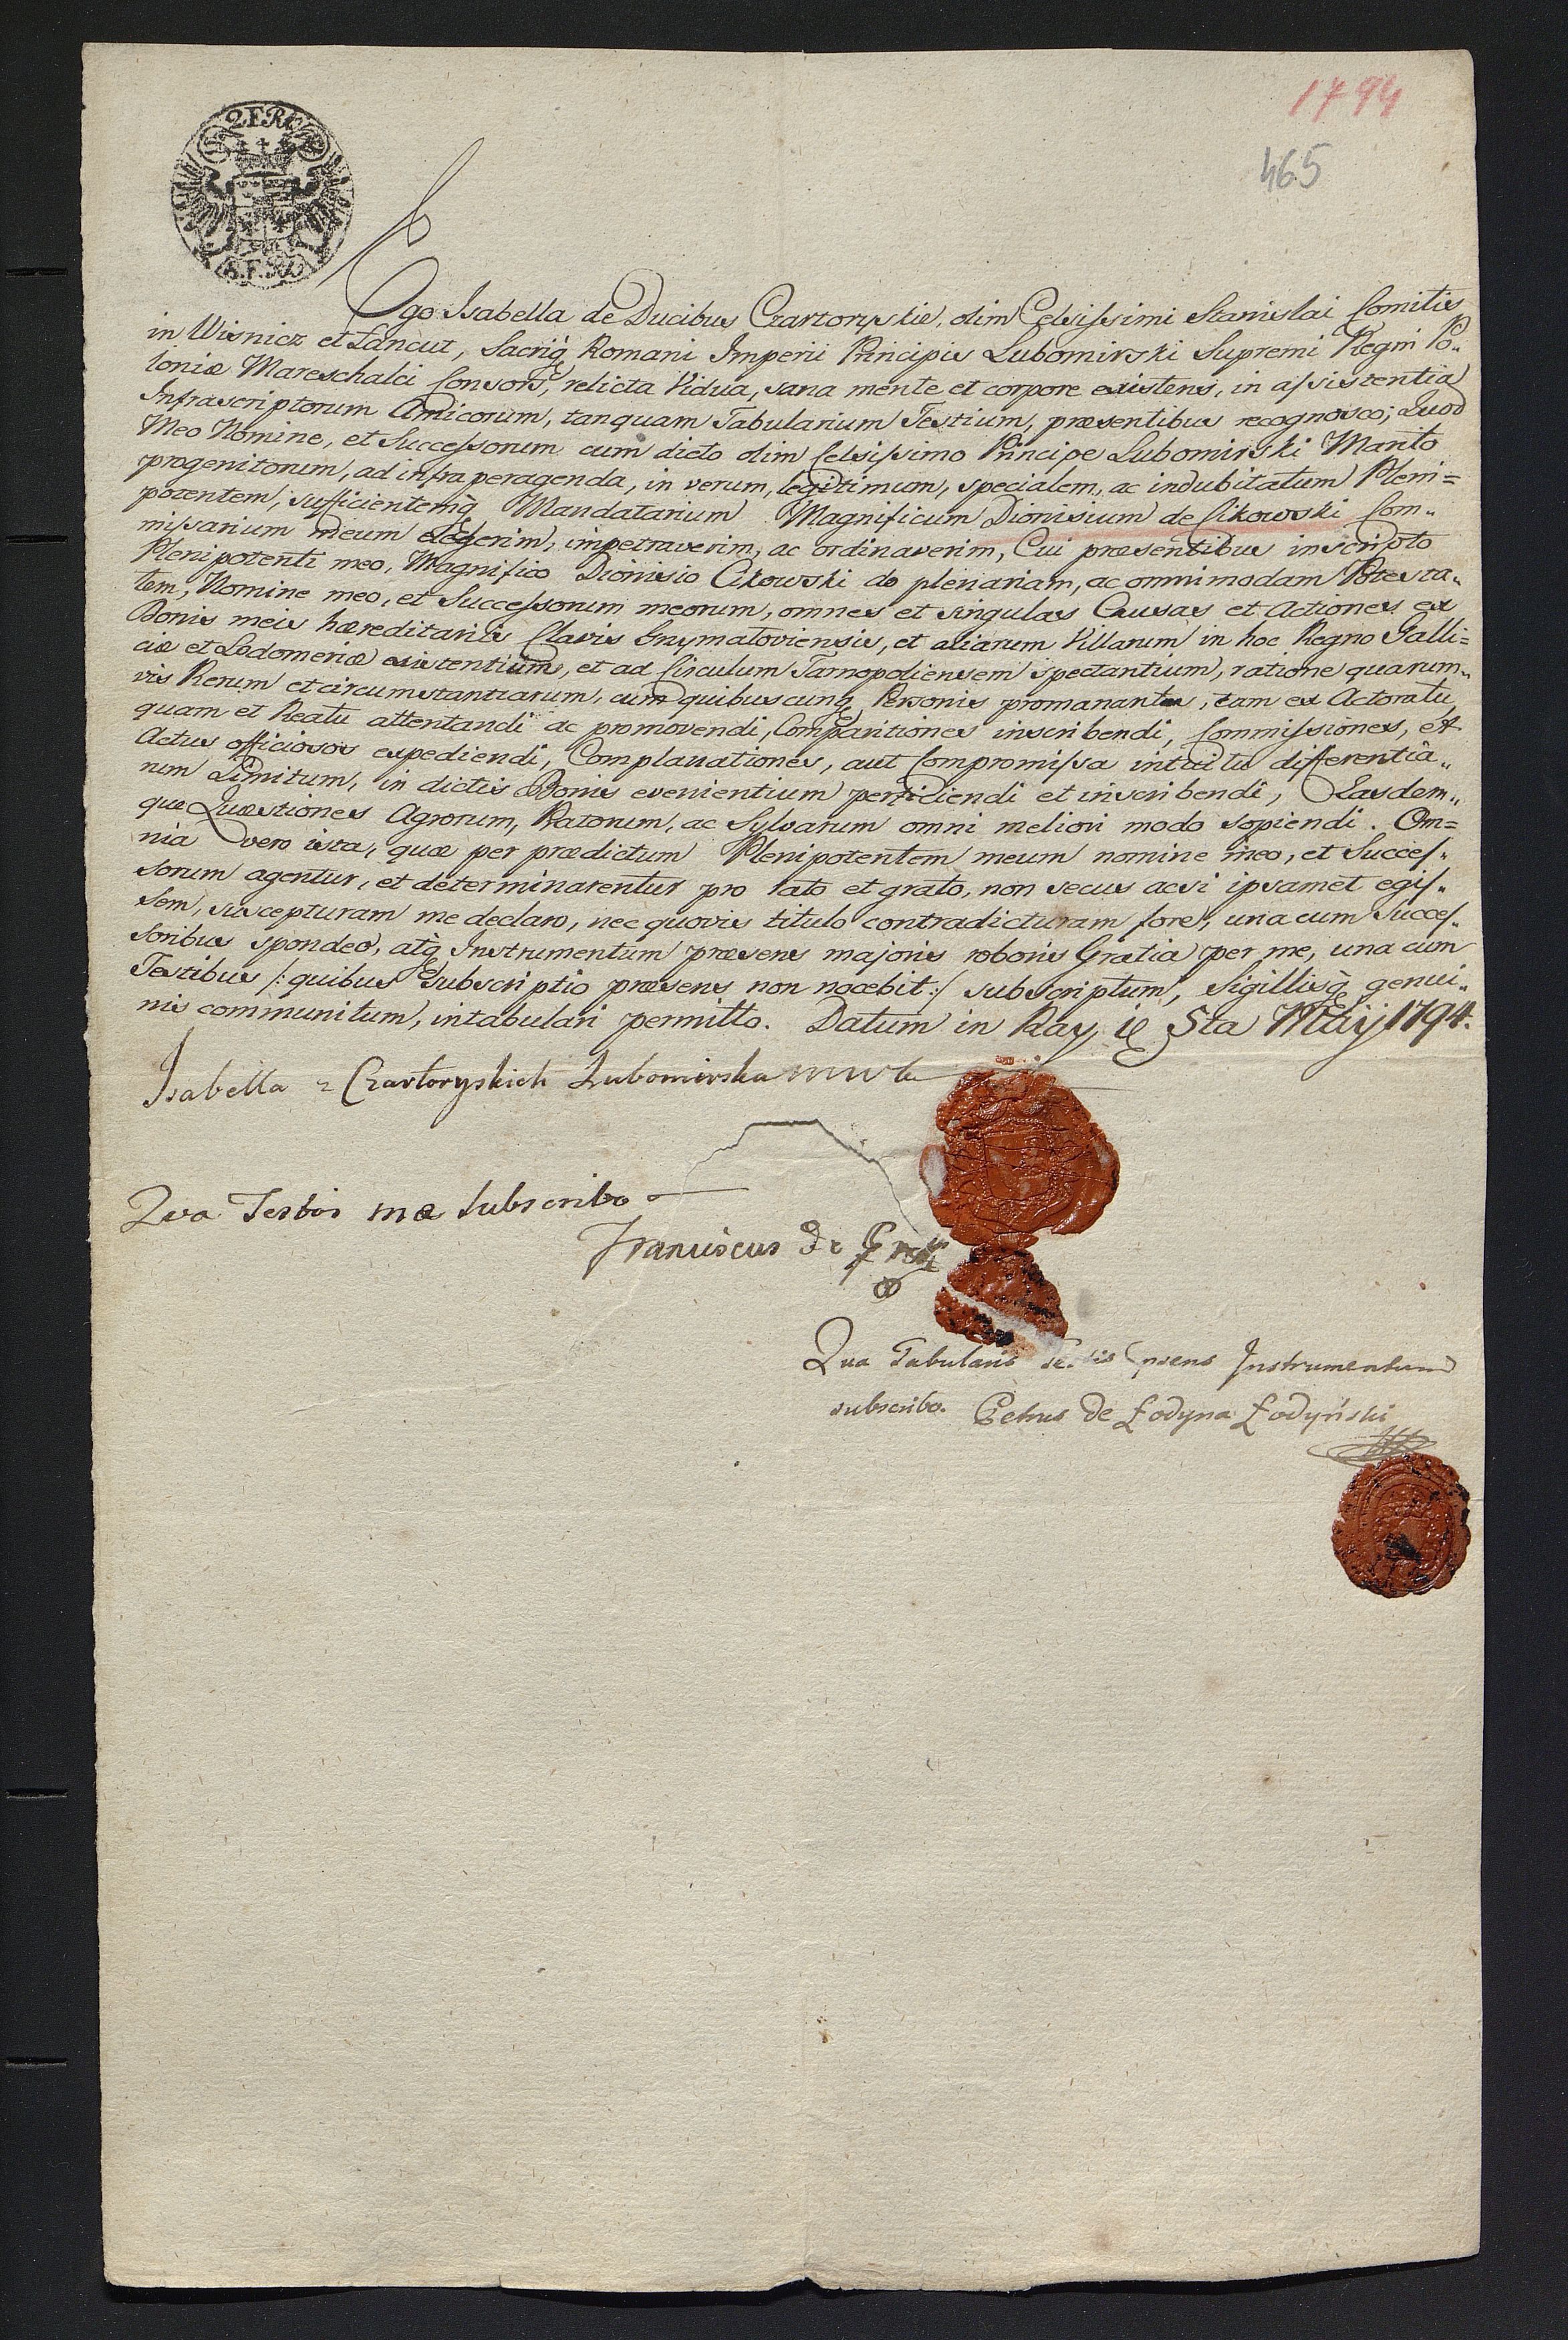 1794
465
2 F.R.
Ego Isabella de Ducibus Czartoryskie, olim Celsissimi Stanislai Comitis
in Wisnicz et Łancut, Sacriq; Romani Imperii Principis Lubomirski Supremi Regni Po„
loniæ Mareschalci Consors, relicta Vidua, sana mente et corpore existens, in assistentia
Infrascriptorum Amicorum, tanquam Tabularium Testium, præsentibus recognosco; Quod
Meo Nomine, et Successorum cum dicto olim Celsissimo Principe Lubomirski Marito
progenitorum, ad infra peragenda, in verum, legitimum, specialem, ac indubitatum Pleni=
potentem, sufficientemq; Mandatarium Magnificum Dionisium de Cikowski Com„
missarium meum elegerim, impetraverim, ac ordinaverim, Cui præsentibus inscripto
Plenipotenti meo, Magnifico Dionisio Cikowski do plenariam, ac omnimodam Potesta„
tem, Nomine meo, et Successorum meorum, omnes et singulas Causas et Actiones ex
Bonis meis hæreditariis Clavis Grzymatoviensis, et aliarum Villarum in hoc Regno Galli=
ciæ et Lodomeriæ existentium, et ad Circulum Tarnopoliensem spectantium, ratione quarum„
vis Rerum et circumstantiarum, cum quibuscunq; Personis promanantes, tam ex Actoratu,
quam et Reatu attentandi ac promovendi, Comparitiones inscribendi, Commissiones, et
Actus officiosos expediendi, Complanationes, aut Compromissa intuitu differentia„
rum Limitum, in dictis Bonis evenientium perficiendi et inscribendi, Easdem„
que Quæstiones Agrorum, Pratorum, ac Sylvarum omni meliori modo sopiendi. Om=
nia vero ista, quæ per prædictum Plenipotentem meum nomine meo, et Succes„
sorum agentur, et determinarentur pro rato et grato, non secus acsi ipsamet egis„
sem, suscepturam me declaro, nec quovis titulo contradicturam fore, una cum Succes„
soribus spondeo, atq; Instrumentum præsens majoris roboris Gratia per me, una cum
Testibus /: quibus Subscriptio præsens non nocebit :/ subscriptum, Sigillisq; genui„
nis communitum, intabulari permitto. Datum in Ray, 5ta Maij 1794.
Isabella z Czartoryskich Lubomirska
Qua Testis me subscribo
Franciscus De
Qua Tabularis Testis præsens Instrumentum
subscribo. Petrus de Łodyna Łodyński